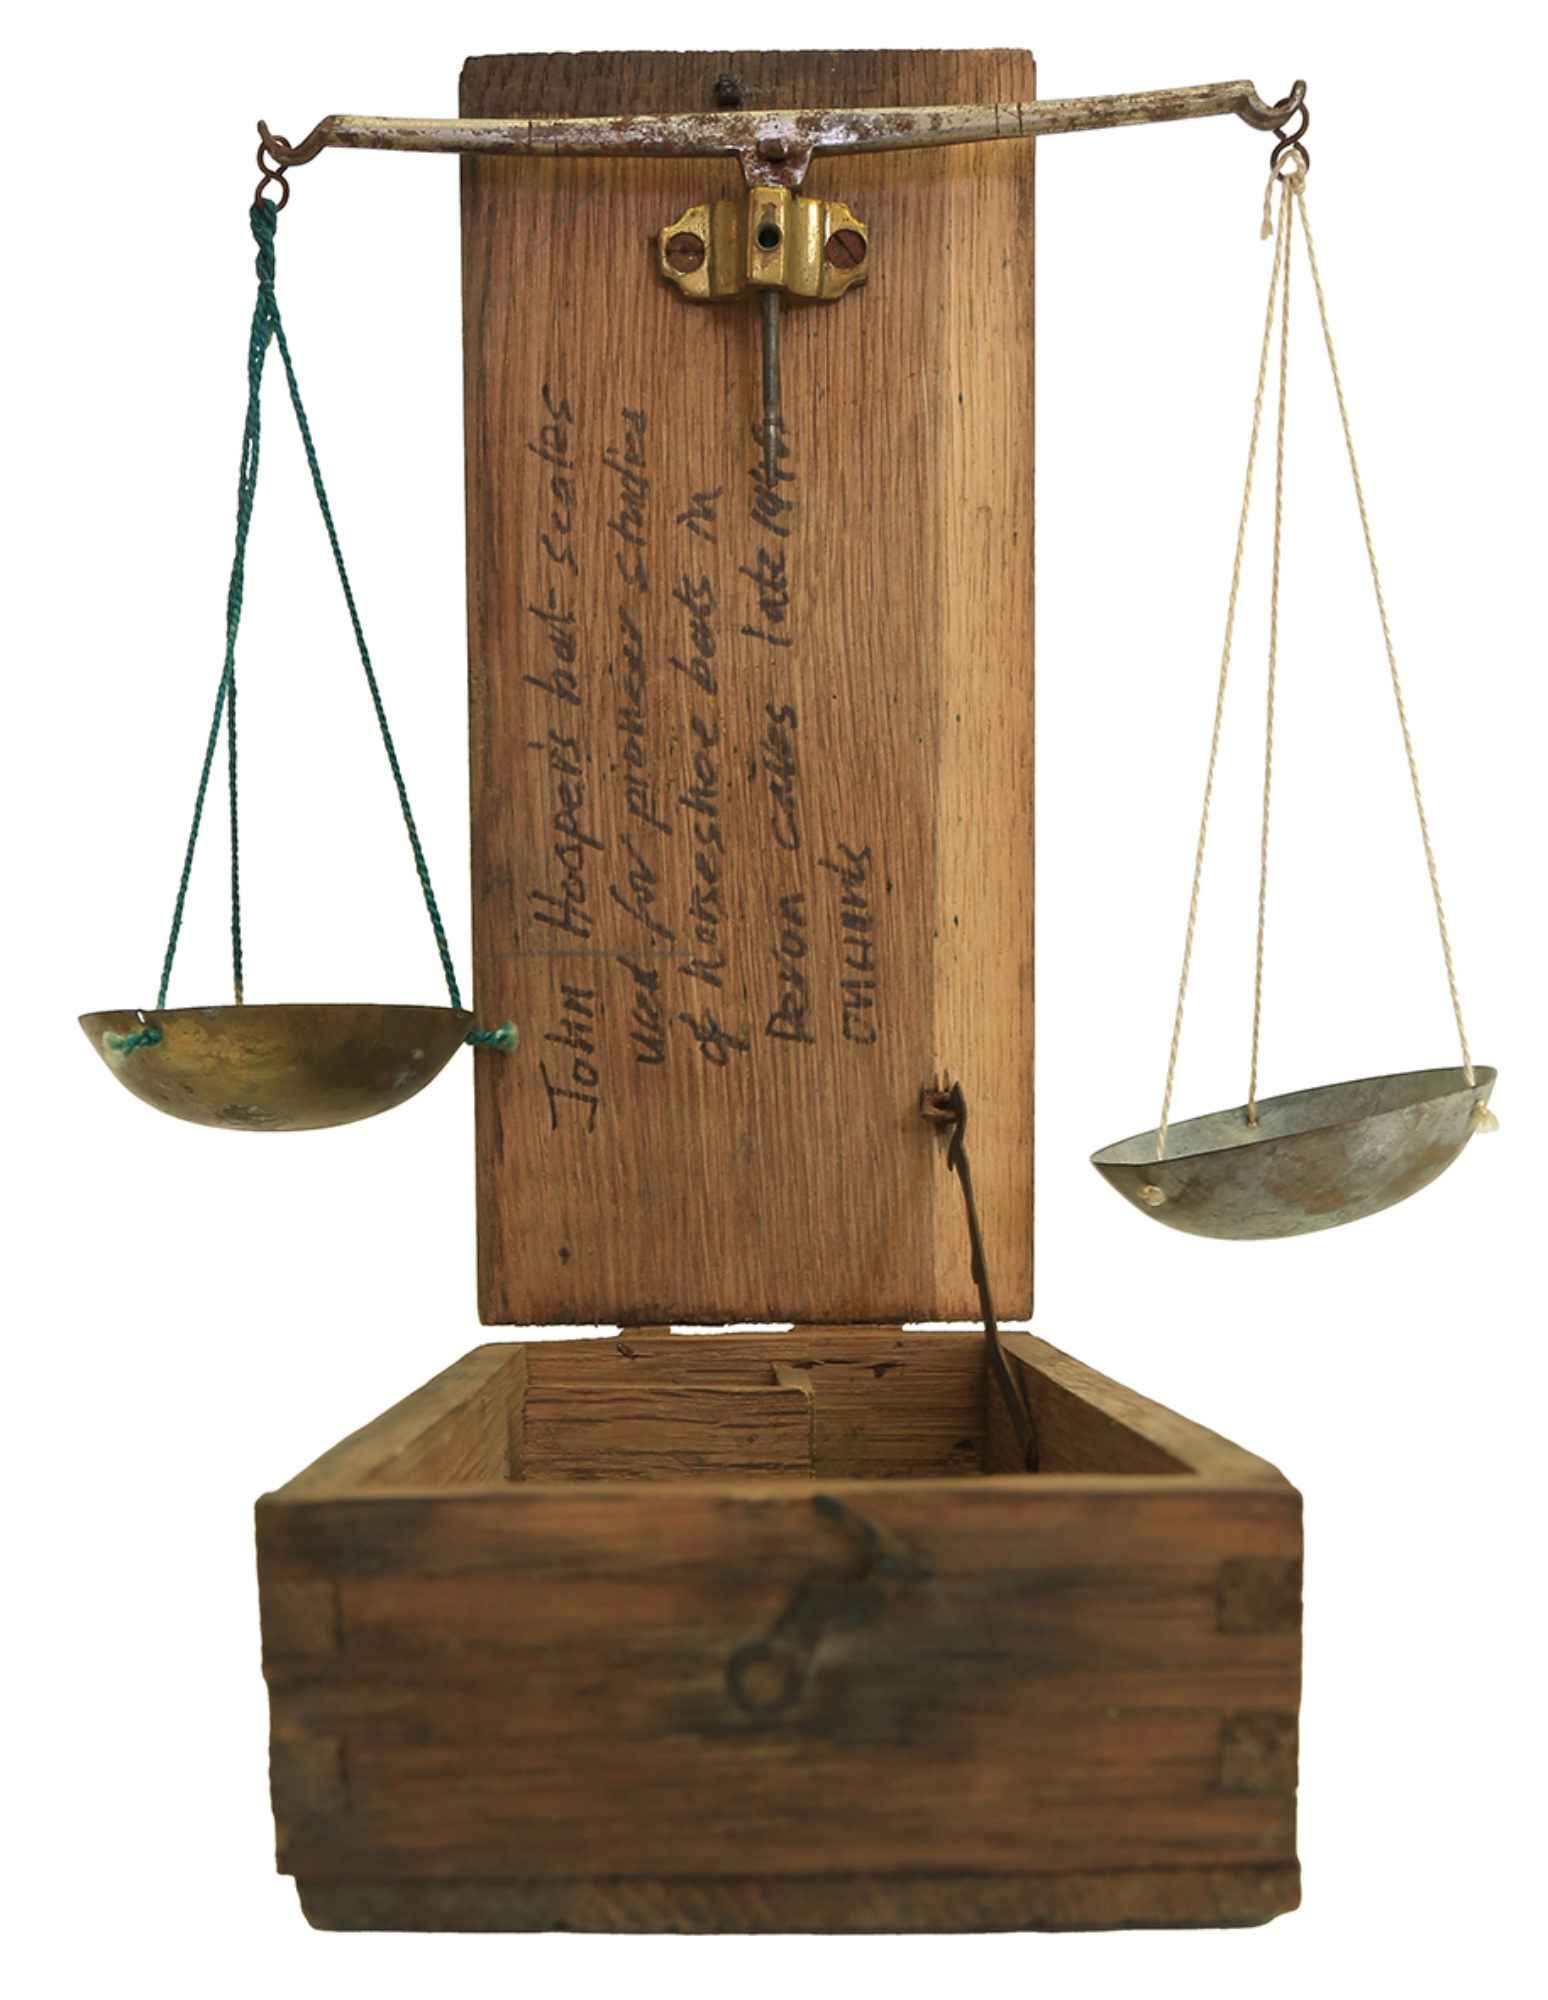 John Hooper's bat-scales
used for pioneer studies
of horseshoe bats in
Devon caves late 1940s
onwards